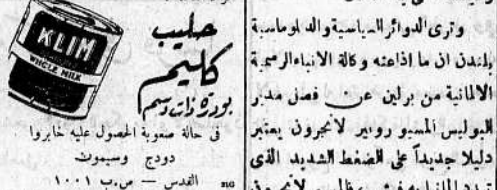 وترى الدوائر السياسية والدبلوماسية
بلندن ان ما اذاعته وكالة الانباء الرسمية
الالمانية من برلين عن فصل مدير
البوليس المسيو روجير لانجرون يعتبر
دليلا جديداً على الضغط الشديد الذى
KLIM
WHOLE MILK
حليب
كليم
بودرة ذات دسم
فى حالة صعوبة الحصول عليه خابروا
دودج وسيموت
القدس — ص.ب ١٠٠١